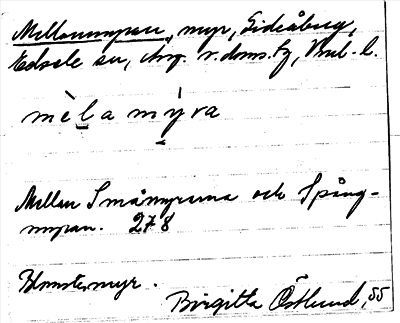 Mellanmyran, myr, Lideåberg,
Edsele sn, Ång. v. doms. tg, Vml. l.
mèla mýra
Mellan Småmyrarna och Spång-
myran. 278
Blomstermyr.
Birgitta Östlund, 55